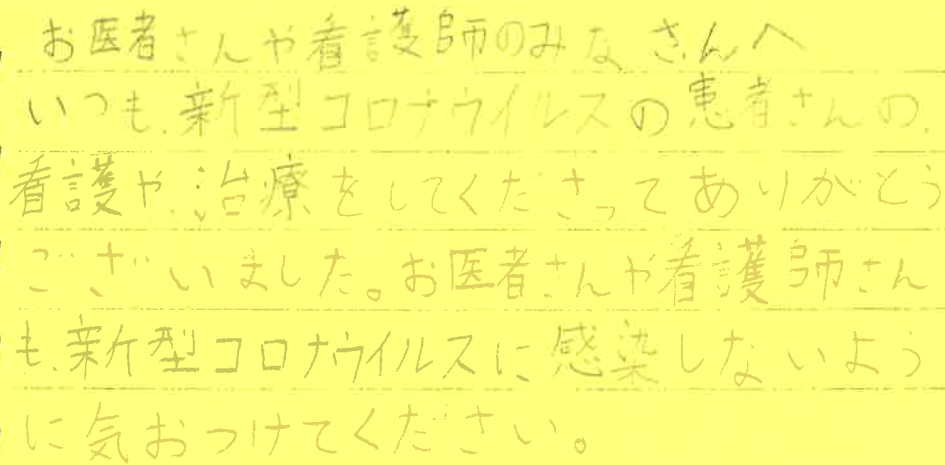 お医者さんや看護師のみなさんへ
いつも、新型コロナウイルスの患者さんの、
看護や、治療をしてくださってありがとう
ございました。お医者さんや看護師さん
も、新型コロナウイルスに感染しないよう
に気おつけてください。